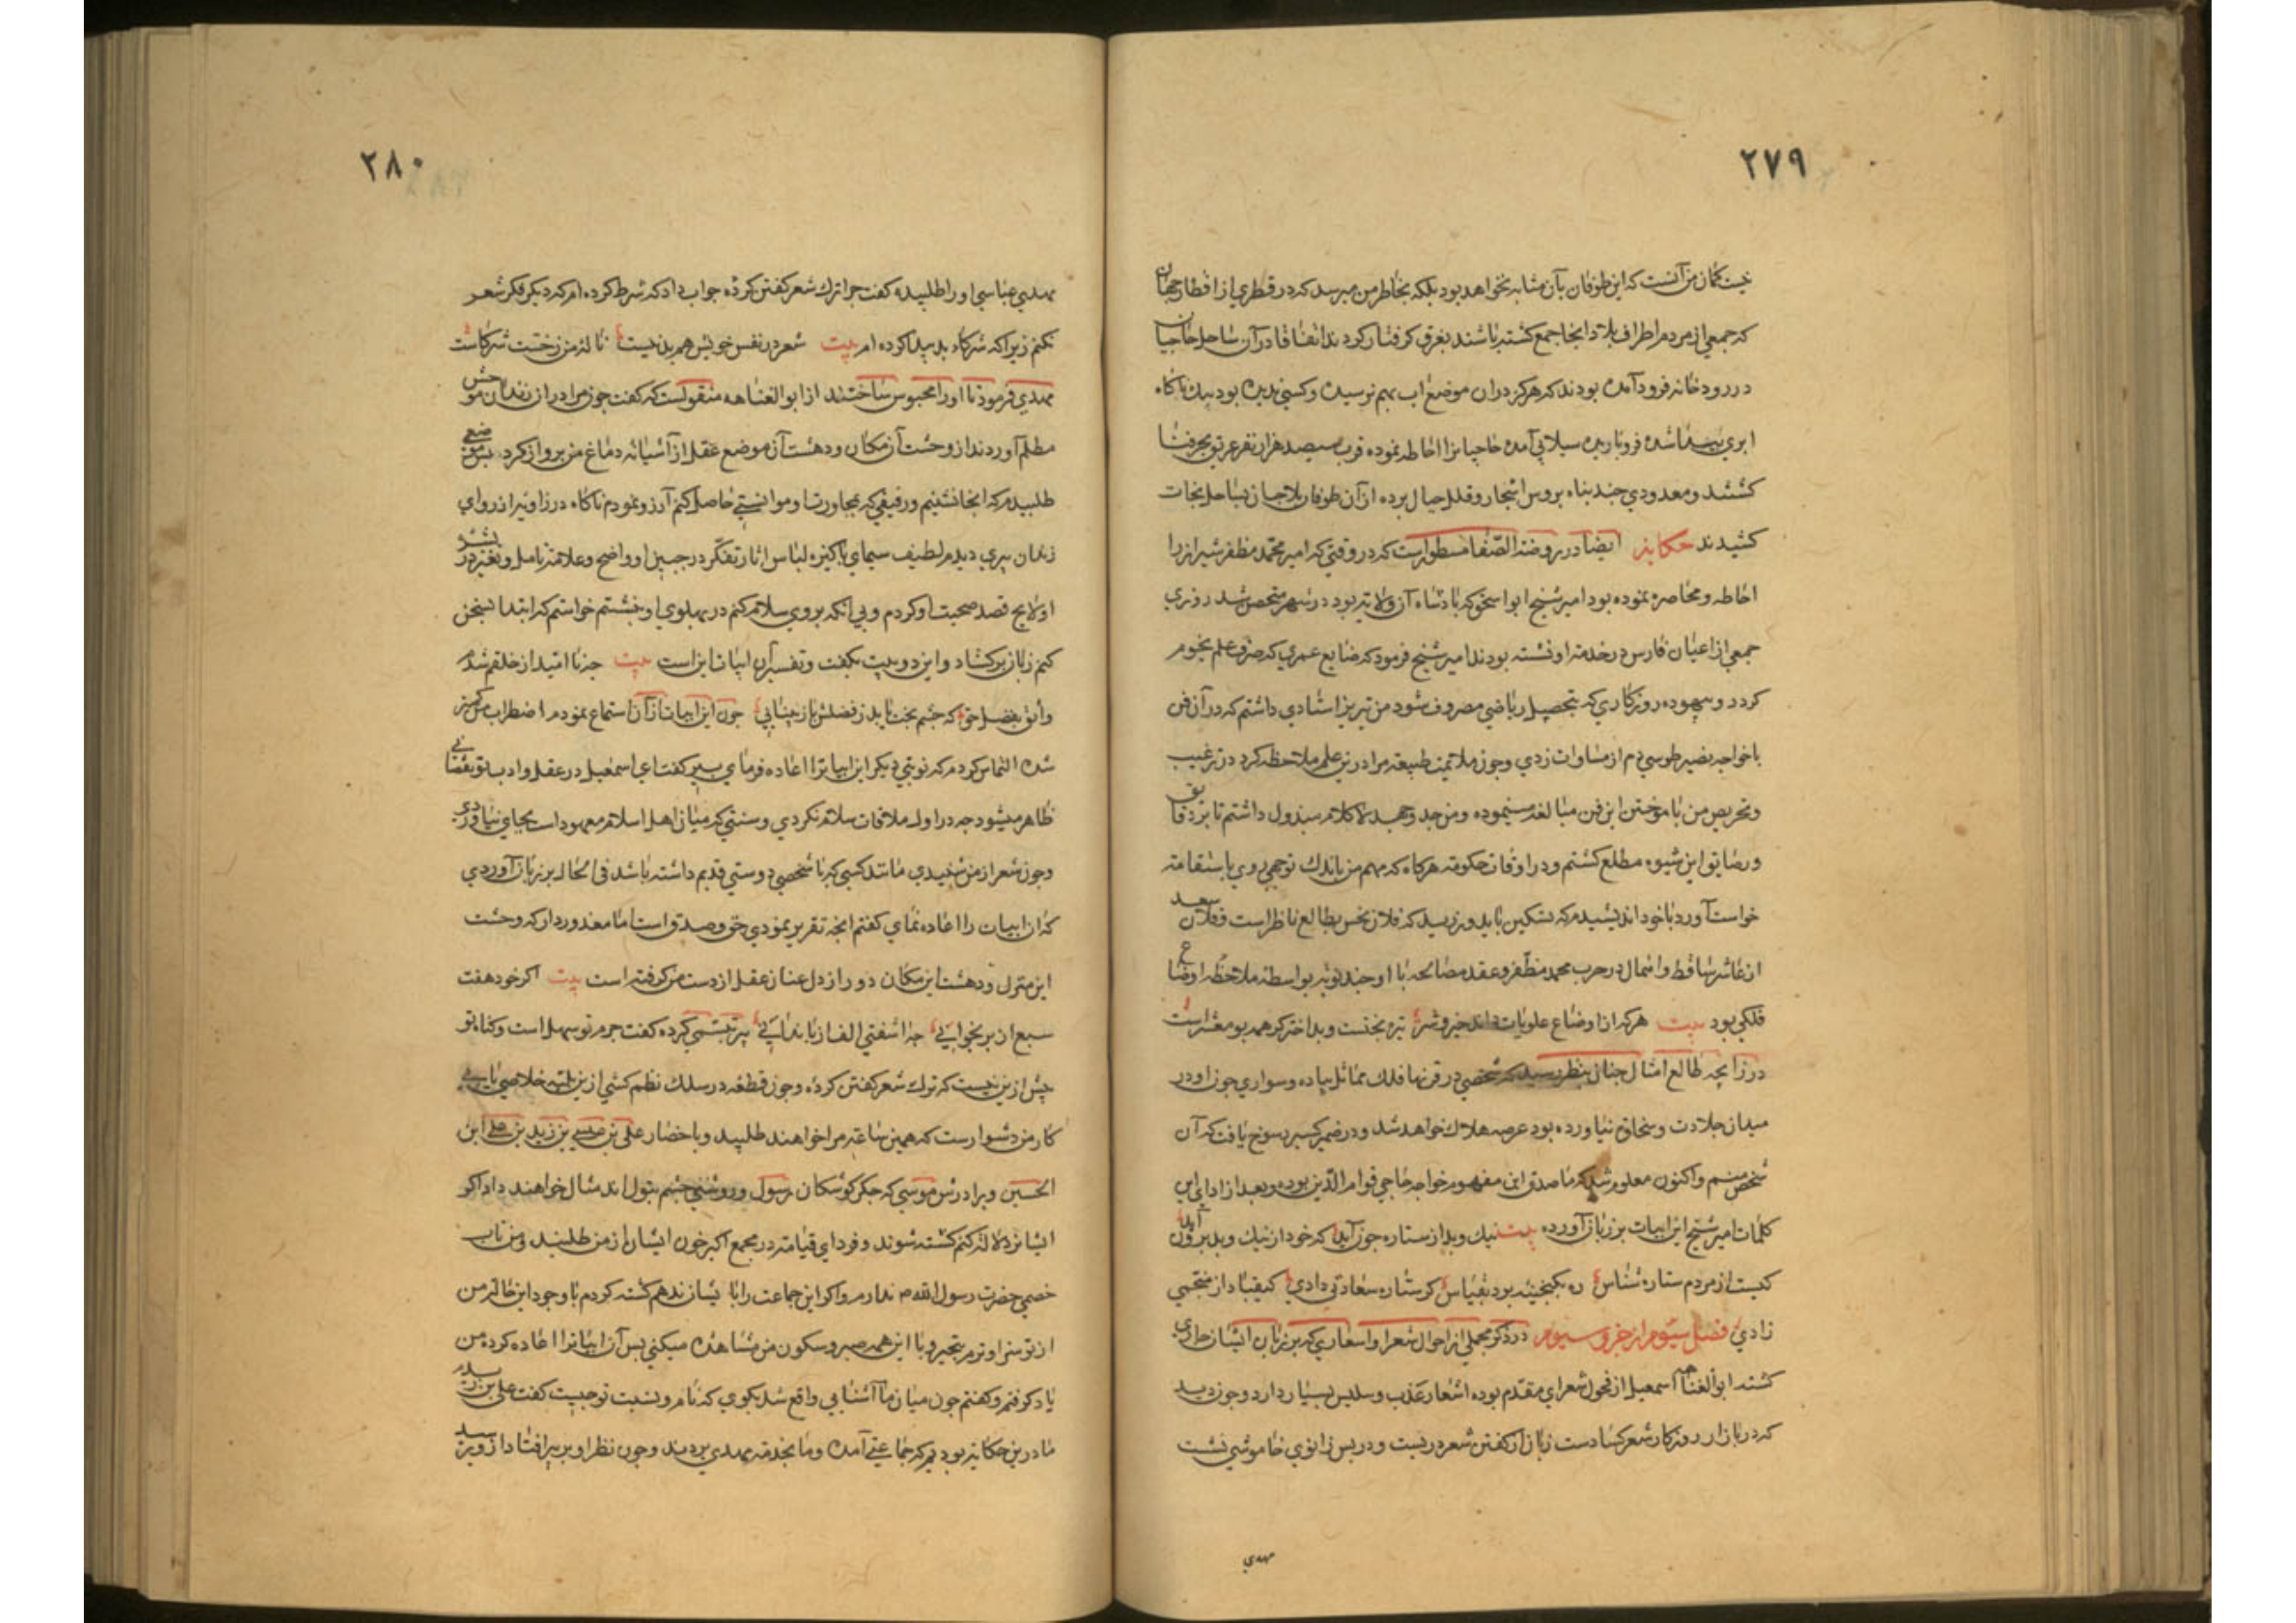 ٢٧٩
خیت کمان من آنست که این طوفان بآن مثابه نخواهد بود بلکه بخاطر من میرسد که در قطری از اقطار جهان
که جمعی از مردم اطراف بلاد انجا جمع کشته باشند بغرق کرفتار کردند اتفاقا در آن ساحل حاجیان
در رودخانه فرود آمده بودند که هرکز دران موضع اب بهم نرسیده و کسی ندیده بود بیک ناکاه
ابری پیدا شده فرو باریده سیلابی آمده حاجیانرا احاطه نموده قرب سیصد هزار نفر غریق بحر فنا
کشتند و معدودی چند پناه بروس اشجار و قلل جبال برده از آن طوفان بلا جان بساحل نجات
کشیدند حکایة ایضا در روضة الصفا مسطور است که در وقتی که امیر محمد مظفر شیراز را
احاطه و محاصره نموده بود امیر شیخ ابو اسحق که پادشاه آن ولایة بود در شهر متحصن شد روزی
جمعی از اعیان فارس در خدمة او نشسته بودند امیر شیخ فرمود که ضایع عمری که صرف علم نجوم
کردد و بیهوده روزکاری که بتحصیل ریاضی مصروف شود من تبریز استادی داشتم که در آن فن
با خواجه نصیر طوسی دم از مساوات زدی و چون ملائمت طبیعة مرا درین علم ملاحظه کرد در ترغیب
و تحریص من باموختن این فن مبالغه مینموده و من جد و جهد لا کلام مبذول داشتم تا بر دقایق
و رضایق این شیوه مطلع کشتم و در اوقات حکومة هرکاه که مهم من باندک توجهی روی باستقامة
خواست آورد با خود اندیشیدم که تسکین باید ورزید که فلان نحس بطالع ناظر است و فلان سعد
از عاشر ساقط و اهمال در حرب محمد مظفر و عقد مصالحه با او چند نوبه بواسطه ملاحظه اوضاع
فلکی بود بیت هر که از اوضاع علویات داند خیر و شر تیره بختست و بد اختر کر همه بو معشر است
در زایجه طالع امثال چنان بنظر رسید که شخصی در قرنها فلک مماثل پیاده و سواری چون او در
میدان جلادت و سخاوة نیاورده بود عرصه هلاک خواهد شد و در ضمیر کسیر رسوخ یافت که آن
شخص منم و اکنون معلوم شد که ماصدق این مفهوم خواجه حاجی قوام الدین بوده و بعد از ادای این
کلمات امیر شیخ این ابیات بر زبان آورده بیت نیک و بد از ستاره چون آید که خود از نیک و بد برون آید
کیست از مردم ستاره شناس ره بکنجینه برد بقیاس کر ستاره سعادتی دادی کیقباد از منجمی
زادی فصل سیوم از جزو سیوم در ذکر مجملی از احوال شعرا و اسعاری که بر زبان ایشان جاری
کشته ابو العتاهه اسمعیل از فحول شعرای مقدم بوده اشعار عذب و سلیس بسیار دارد و چون دید
که در بازار روزکار شعر کساد ست زبان از کفتن شعر دربست و در پس زانوی خاموشی نشست
مهدی
٢٨٠
مهدی عباسی او را طلبیده کفت چرا ترک شعر کفتن کرده جواب داد که شرط کرده ام که دیکر فکر شعر
نکنم زیرا که شرکاء بد پیدا کرده ام بیت شعر در نفس خویش هم بد نیست ناله من ز خست شرکاست
مهدی فرمود تا او را محبوس ساختند از ابو العتاهه منقولست که کفت چون مرا در آن زندان موحش
مظلم آوردند از وحشت آن مکان و دهشت آن موضع عقل از آشیانه دماغ من پرواز کرد پس موضعی
طلبیدم که انجا نشینم و رفیقی که بمجاورت او موانستی حاصل کنم آرزو نمودم ناکاه در زاویه از زوای
زندان پیری دیدم لطیف سیمای پاکیزه لباس اثار تفکر در جبین او واضح و علامة تامل و تغیر در بشره
او لایح قصد صحبت او کردم و بی انکه بر وی سلام کنم در پهلوی او نشستم خواستم که ابتدا بسخن
کنم زبان برکشاد و این دو بیت بکفت و تفسیر آن ابیات این است بیت چه نا امید از خلقم شدم
واثق بفضل حق که چشم بخت یابد ز فضلش باز بینایی چون این ابیات از آن استماع نمودم اضطراب من کمتر
شده التماس کردم که نوبتی دیکر این ابیاترا اعاده فرمای پیر کفت ای اسمعیل در عقل و ادب تو نقصانی
ظاهر میشود چه در اول ملاقات سلام نکردی و سنتی که میان اهل اسلام معهود است بجای نیاوردی
و چون شعر از من شنیدی مانند کسی که با شخصی دوستی قدیم داشته باشد فی الحال بر زبان آوردی
که این ابیات را اعاده نمای کفتم انچه تقریر نمودی حق و صدق است اما معذور دار که وحشت
این منزل و دهشت این مکان دور از دل عنان عقل از دست من کرفته است بیت اکر خود هفت
سبع از بر بخوانی چه اشفتی الف از با ندانی پیر تبسمی کرده کفت جرم تو سهل است و کناه تو
بیش ازین نیست که ترک شعر کفتن کرده و چون قطعه در سلک نظم کشی ازین بلیه خلاصی یابی
کار من دشوار ست که همین ساعة مرا خواهند طلبید و باحضار علی بن عیسی بن زید بن علی ابن
الحسین و برادرش موسی که جکر کوشکان رسول و روشنی چشم بتول اند مثال خواهند داد اکر
ایشانرا دلالة کنم کشته شوند و فردای قیامة در مجمع اکبر خون ایشان از من طلبند و من تاب
خصمی حضرت رسول الله ص ندارم و اکر این جماعت را با یشان ندهم کشته کردم با وجود این حالة من
از تو سزاوترم بتحیر و با این همه صبر و سکون من مشاهده میکنی پس آن ابیاترا اعاده کرده من
یاد کرفتم و کفتم چون میان ما آشنایی واقع شد بکوی که نام و نسبت تو چیست کفت علی بن
ما درین حکایة بودیم که جماعتی آمده و ما بخدمة مهدی بردند و چون نظر او بر پیر افتاد از وی پرسید